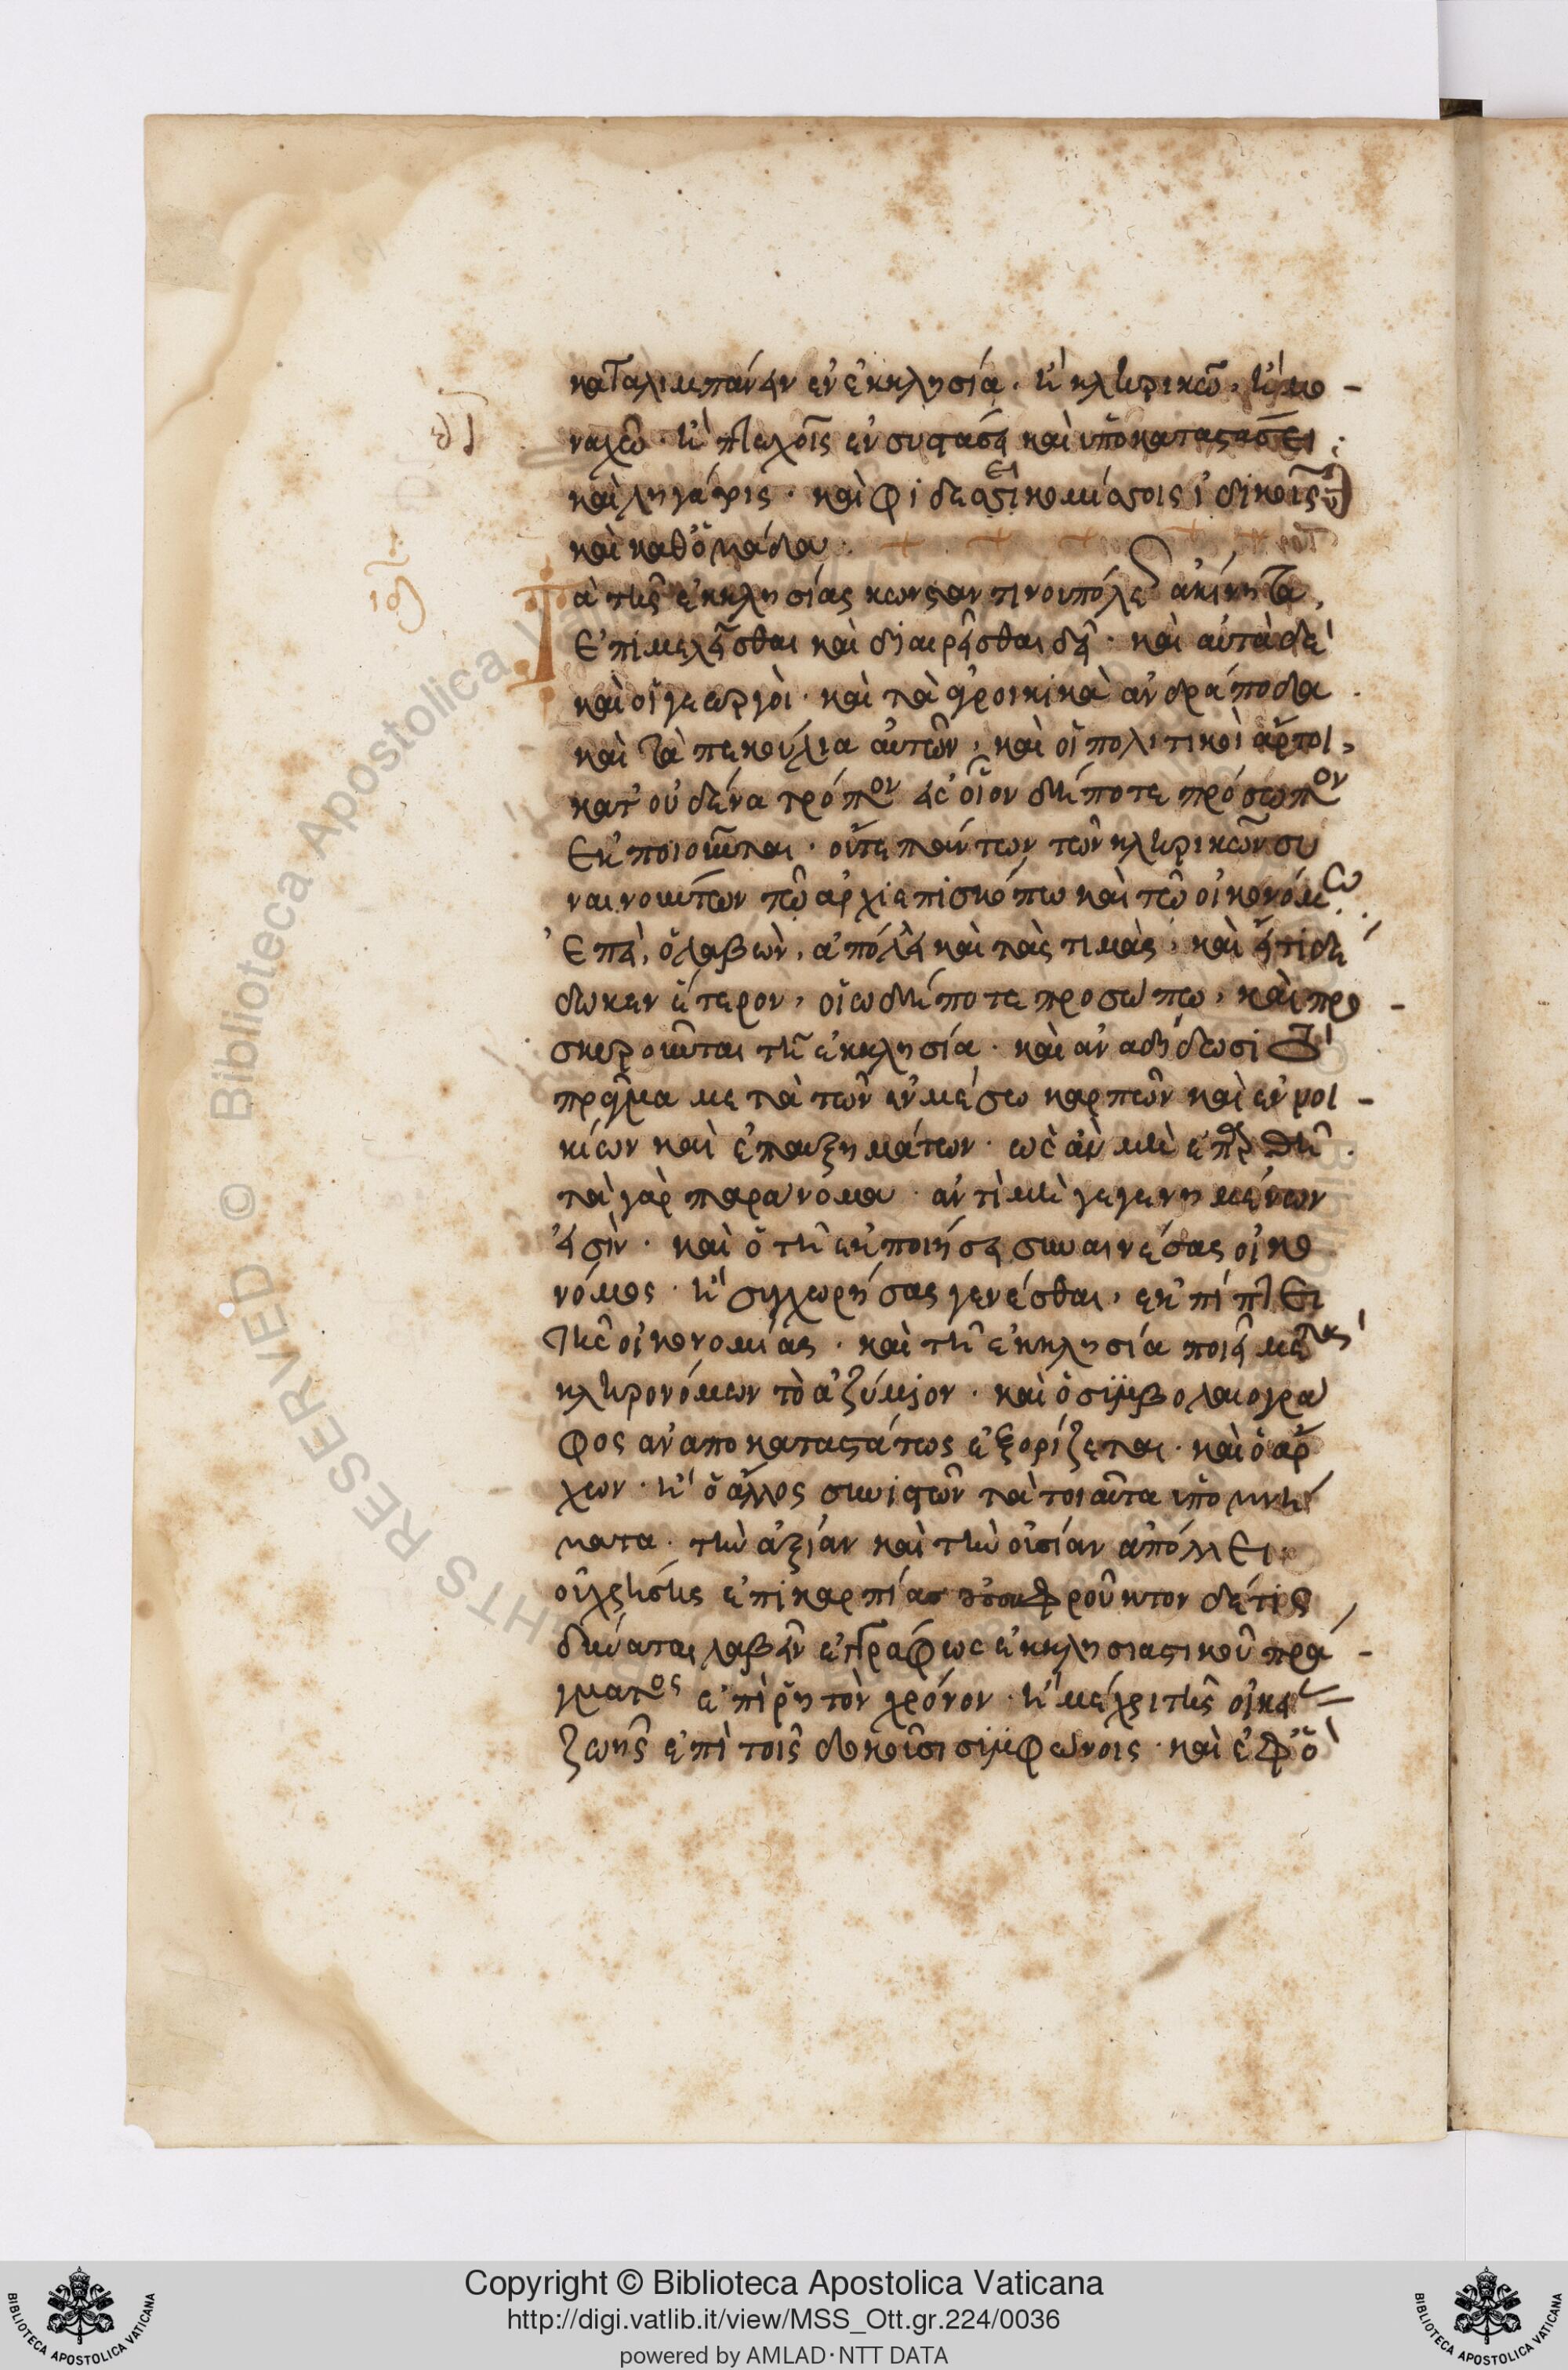 καταλιμπάνειν ἐν ἐκκλησία· ἢ κληρικῶ, ἢ μο
ναχῶ· ἢ πτωχοῖς ἐν συστάσει καὶ ὑποκαταστάσει
καὶ ληγάτοις· καὶ φιδεϊκομίσσοις ἰδικοῖς
καὶ καθόμάδα·
Τὰ τῆς ἐκκλησίας κωνσταντινουπόλεως ἀκίνητα,
ἐπιμελεῖσθαι καὶ διαιρεῖσθαι δεῖ· καὶ αὐτὰ δὲ
καὶ οἱ γεωργοὶ· καὶ τὰ ἀγροικικὰ ἀνδράποδα
καὶ τὰ πεκούλια αὐτῶν, καὶ οἱ πολιτικοὶ ἄρτοι,
κατ' οὐδένα τρόπον εἰς οἷον δήποτε πρόσωπον
ἐκποιοῦνται· οὔτε πάντων τῶν κληρικῶν συ
ναινούντων τῶ ἀρχιεπισκόπω καὶ τῶ οἰκονόμω
ἐπεὶ, ὁ λαβὼν, ἀπόλλει καὶ τὰς τιμὰς, καὶ εἴ τι δέ
δωκεν ἕτερον, οἱωδήποτε προσώπω, καὶ προ
σκυροῦνται τῆ ἐκκλησία· καὶ ἀναδίδωσι τὸ
πρᾶγμα μετὰ τῶν ἐν μέσω καρπῶν καὶ ἐνοι
κίων καὶ ἐπαυξημάτων· ὡς ἂν μὴ ἐπράθη·
τὰ γὰρ παράνομα ἀντὶ μὴ γεγενημένων
εἰσὶν· καὶ ὁ τῆ ἐκποιήσει συναινέσας οἰκο
νόμος· ἢ συγχωρήσας γενέσθαι, ἐκπίπτει
τῆς οἰκονομίας· καὶ τῆ ἐκκλησία ποιεῖ μετὰ
κληρονόμων τὸ ἀζύμιον· καὶ ὁ συμβολαιογρά
φος ἀναποκαταστάτως ἐξορίζεται· καὶ ὁ ἄρ
χων· ἢ ὁ ἄλλος συνιστῶν τὰ τοιαῦτα ὑπομνή
ματα· τὴν ἀξίαν καὶ τὴν οὐσίαν ἀπόλλει
ἐπικαρπίας ρούκτον δέ τις
δύναται λαβεῖν ἐγγράφως ἐκκλησιαστικοῦ πρά
γματος ἐπὶ ῥητὸν χρόνον· ἢ μέχρι τῆς οἰκεί
ζωῆς ἐπὶ τοῖς δοκοῦσι συμφώνοις· καὶ ἐφ' ὃ
Copyright © Biblioteca Apostolica Vaticana
http://digi.vatlib.it/view/MSS_Ott.gr.224/0036
powered by AMLAD·NTT DATA